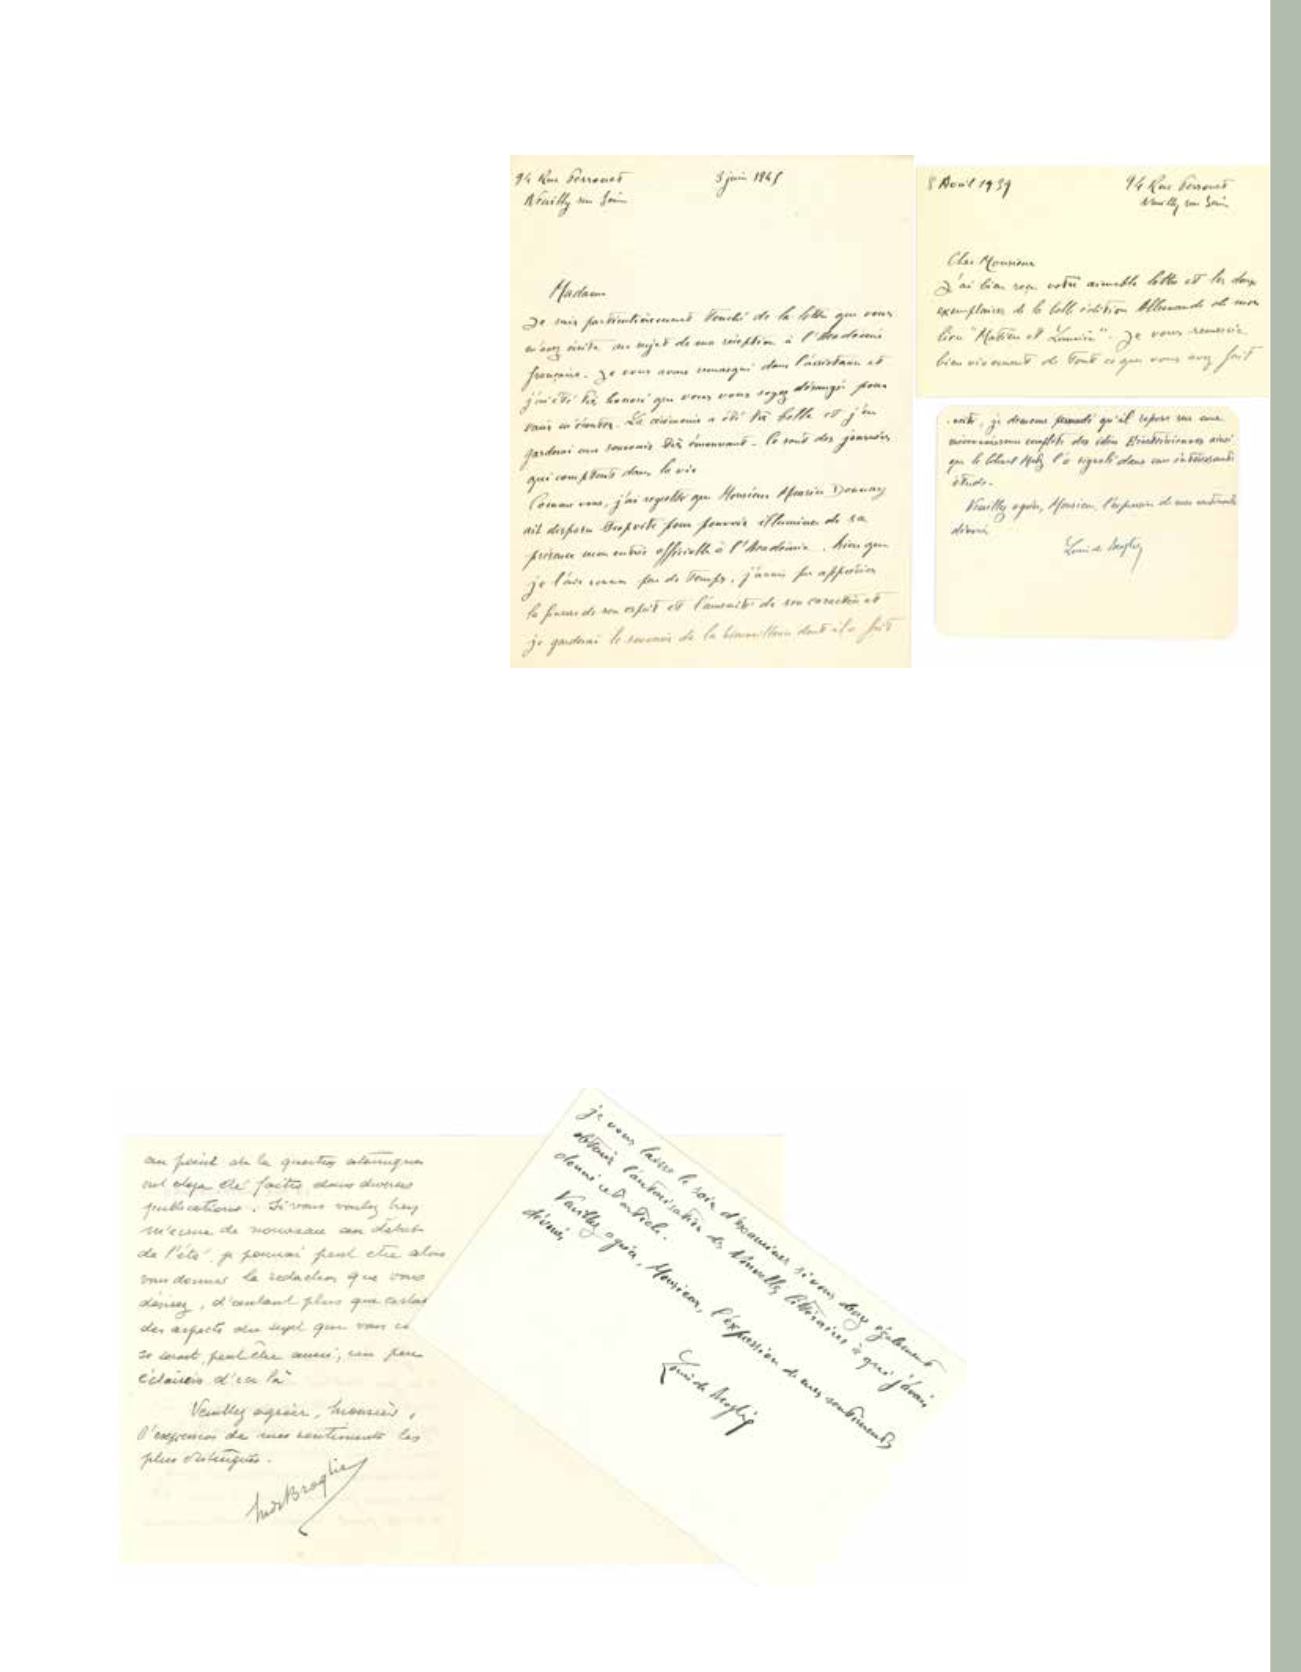 94 Rue Perronet
Neuilly sur Seine
3 juin 1945
Madame
Je suis particulièrement touché de la lettre que vous
m'avez écrite au sujet de ma réception à l'Académie
française. Je vous avais remarqué dans l'assistance et
j'ai été très honoré que vous vous soyez dérangée pour
venir m'écouter. La cérémonie a été très belle et j'en
garderai un souvenir très émouvant. Ce sont des journées
qui comptent dans la vie
Comme vous, j'ai regretté que Monsieur Maurice Donnay
ait disparu trop vite pour pouvoir illuminer de sa
présence mon entrée officielle à l'Académie. Bien que
je l'aie connu peu de temps, j'avais pu apprécier
la finesse de son esprit et l'aménité de son caractère et
je garderai le souvenir de la bienveillance dont il a fait
8 Avril 1939
94 Rue Perronet
Neuilly sur Seine
Cher Monsieur
J'ai bien reçu votre aimable lettre et les deux
exemplaires de la belle édition Allemande de mon
livre "Matière et Lumière". Je vous remercie
bien vivement de tout ce que vous avez fait
je demeure persuadé qu'il repose sur une
méconnaissance complète des idées Einsteiniennes ainsi
que le Colonel l'a signalé dans son intéressante
étude.
Veuillez agréer, Monsieur, l'expression de mes sentiments
dévoués
Louis de Broglie
au point de la question atomique
ont déjà été faites dans diverses
publications. Si vous voulez bien
m'écrire de nouveau au début
de l'été je pourrai peut être alors
vous donner la rédaction que vous
désirez, d'autant plus que certains
des aspects du sujet que vous
se seront peut être aussi, un peu
éclaircis d'ici là
Veuillez agréer, Monsieur,
l'expression de mes sentiments les
plus distingués.
M de Broglie
je vous laisse le soin d'examiner si vous devez également
obtenir l'autorisation des Nouvelles littéraires à qui j'avais
donné cet article.
Veuillez agréer, Monsieur, l'expression de mes sentiments
dévoués
Louis de Broglie